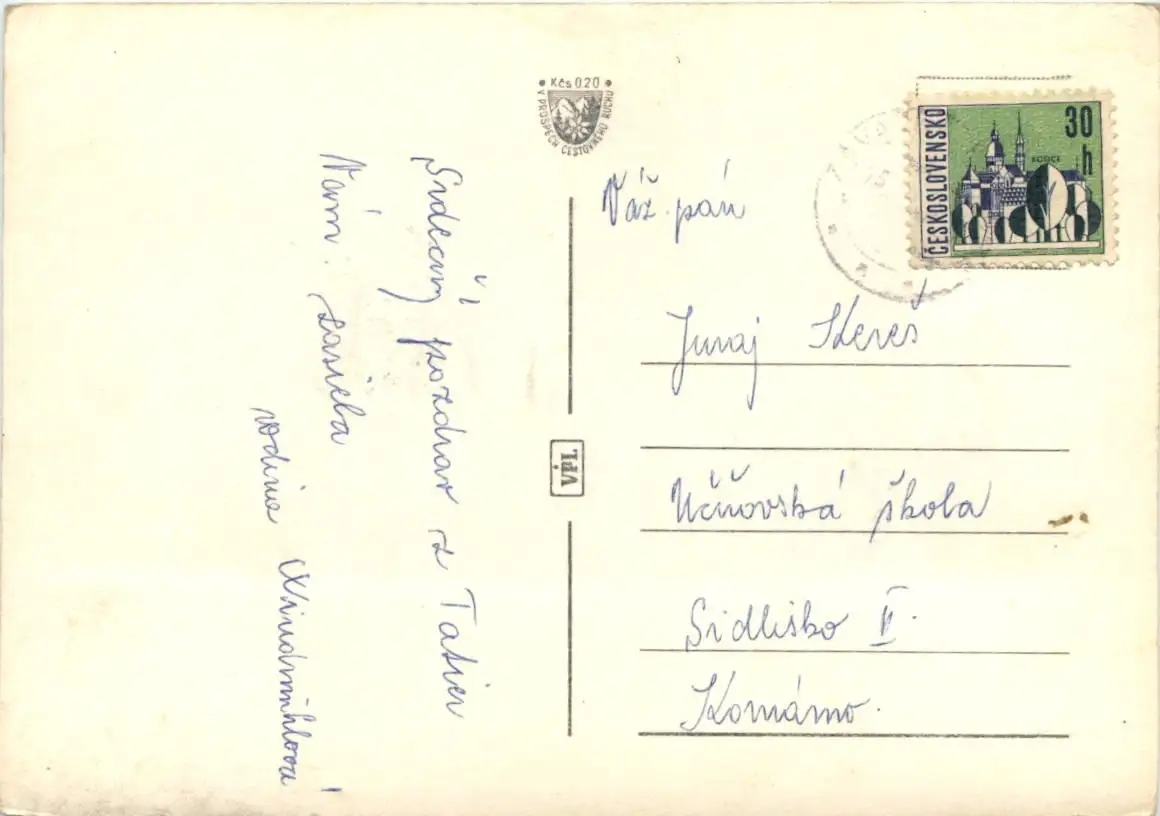 Srdečný pozdrav z Tatier
Vám zasiela
rodina Windmühlová
Kčs 0,20
V PROSPECH CESTOVNÉHO RUCHU
VPL
ČESKOSLOVENSKO
30
h
KOŠICE
Váž. pán
Juraj Kereš
Učňovská škola
Sídlisko II.
Komárno.